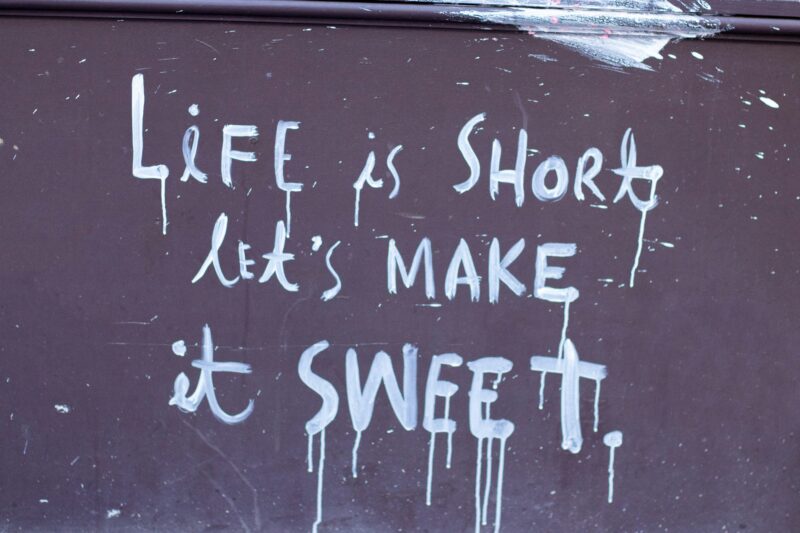 LiFE is SHORt
let's MAKE
it SWEET.